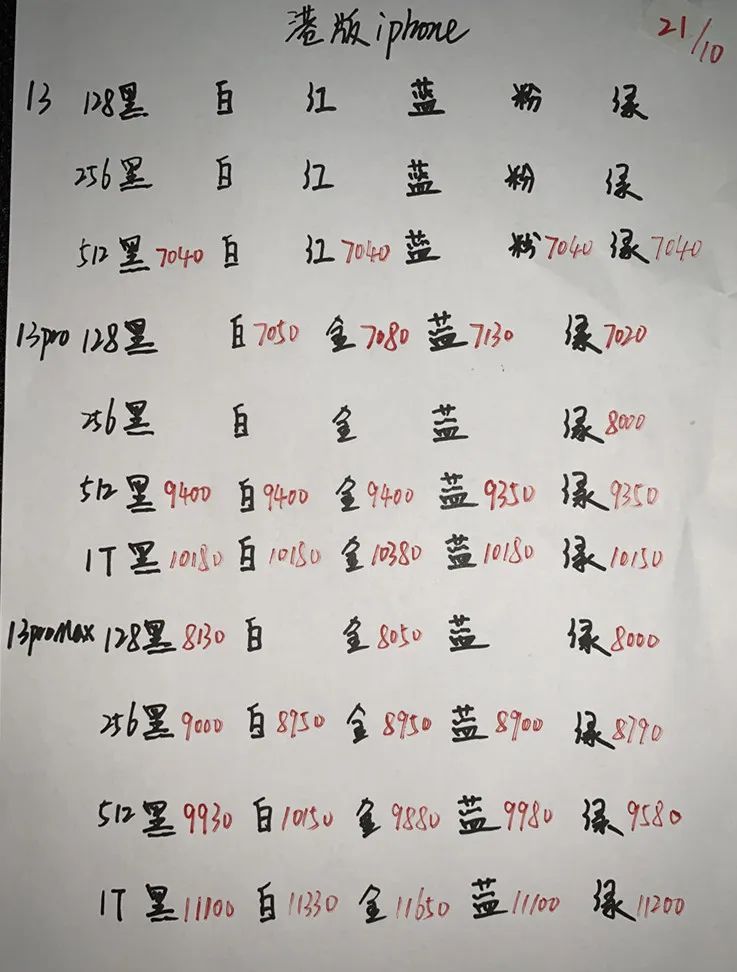 港版iphone 21/10
13 128黑 白 红 蓝 粉 绿
256黑 白 红 蓝 粉 绿
512黑7040 白 红7040 蓝 粉7040 绿7040
13pro 128黑 白7050 金7080 蓝7130 绿7020
256黑 白 金 蓝 绿8000
512黑9400 白9400 金9400 蓝9350 绿9350
1T黑10180 白10180 金10380 蓝10180 绿10150
13proMax 128黑8130 白 金8050 蓝 绿8000
256黑9000 白8950 金8950 蓝8900 绿8790
512黑9930 白10150 金9880 蓝9980 绿9580
1T黑11100 白11330 金11650 蓝11100 绿11200